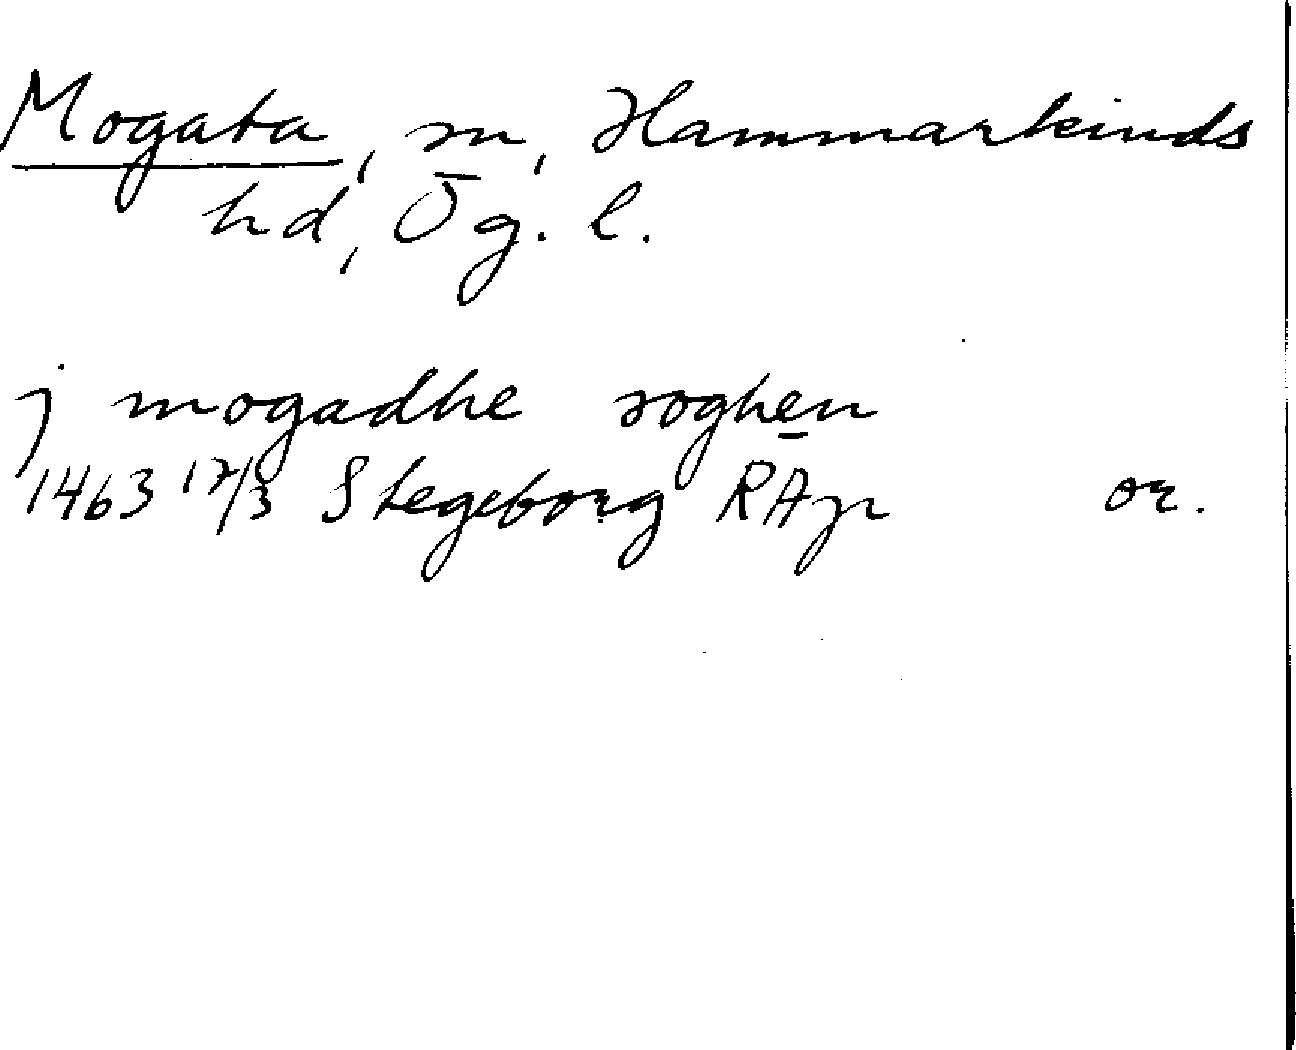 Mogata, sn, Hammarkinds
hd, Ög. l.
j mogadhe soghen
1463 12/3 Stegeborg RAp or.